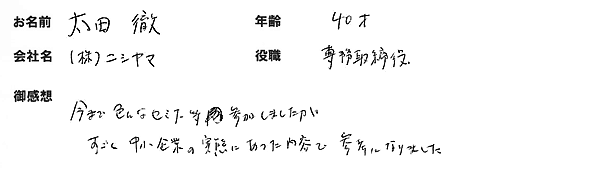 お名前 太田 徹 年齢 40才
会社名 (株)ニシヤマ 役職 専務取締役
御感想
今まで色んなセミナー 参加しましたが
すごく中小企業の実態にあった内容で参考になりました